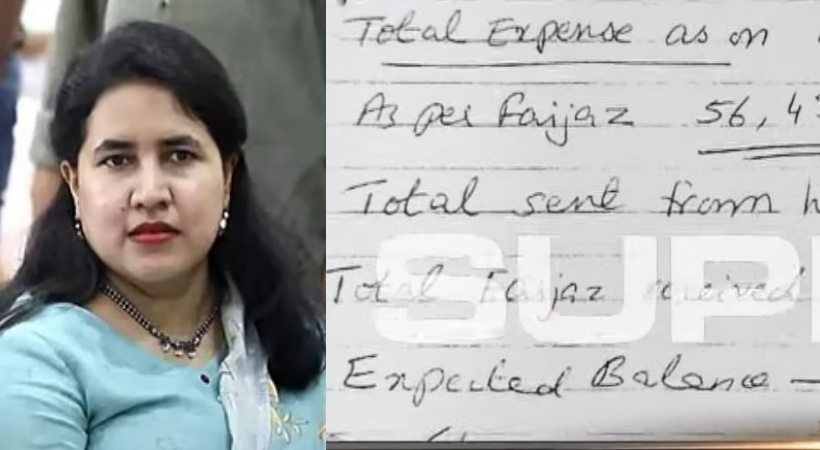 Total Expense as on
As per Faijaz 56,43
Total sent from h
Total Faijaz received
SUP
Expected Balance —